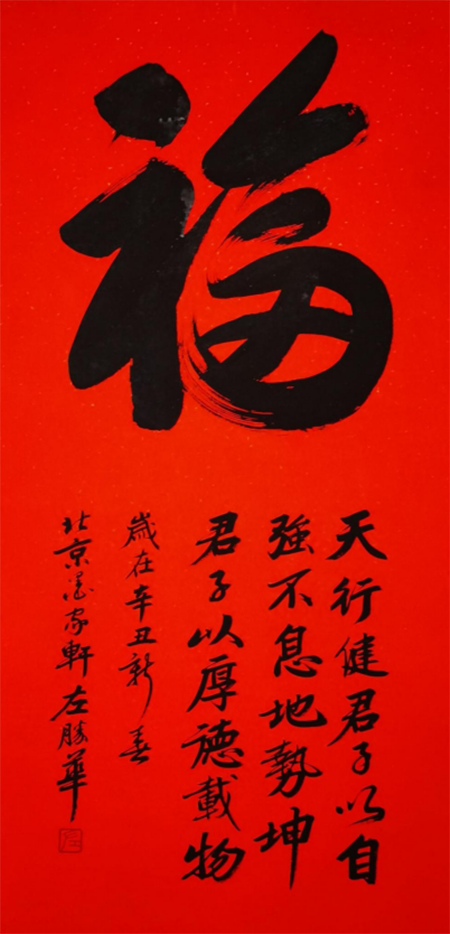 福
天行健君子以自
強不息地勢坤
君子以厚德載物
歲在辛丑新春
北京墨家軒左勝華